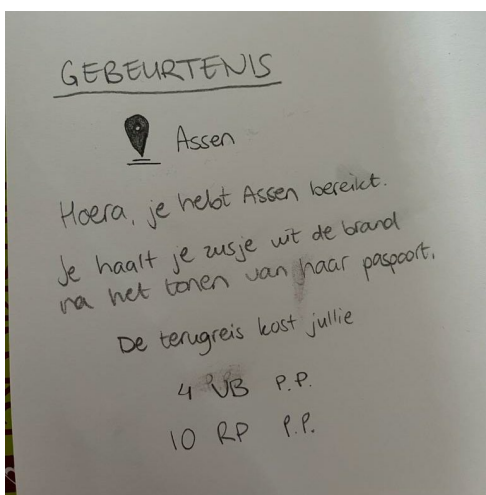 GEBEURTENIS
Assen
Hoera, je hebt Assen bereikt.
Je haalt je zusje uit de brand
na het tonen van haar paspoort.
De terugreis kost jullie
4 VB P.P.
10 RP P.P.